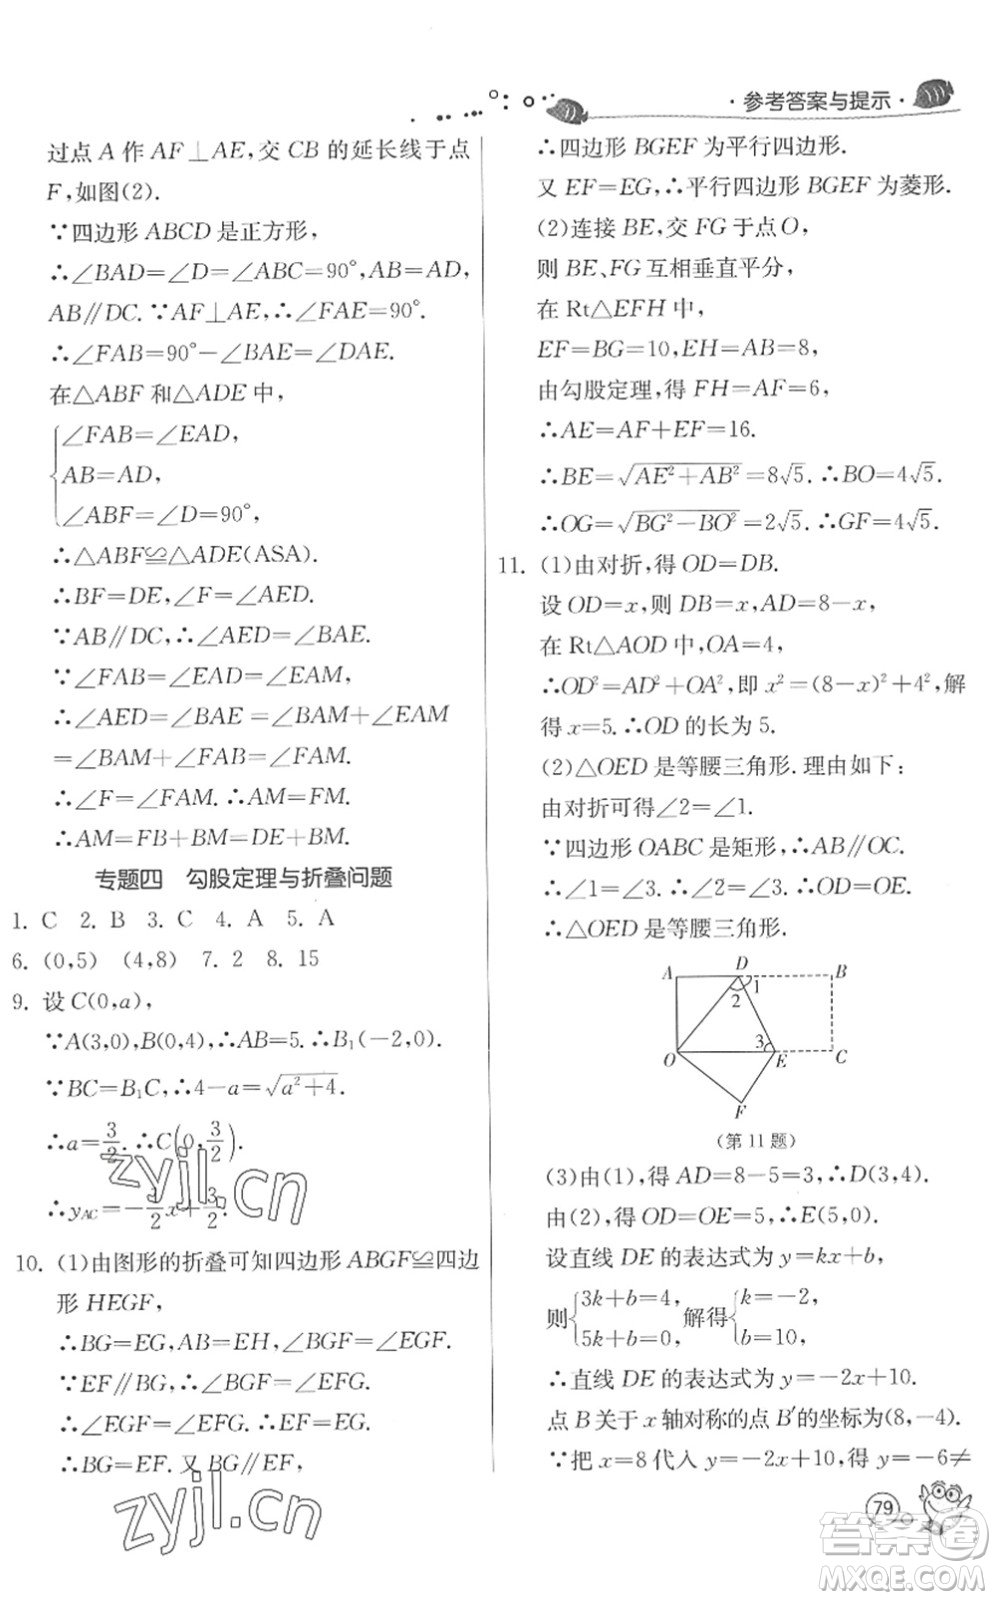 ·参考答案与提示·
过点 A 作 AF⊥AE,交 CB 的延长线于点
F,如图(2).
∵四边形 ABCD 是正方形,
∴∠BAD=∠D=∠ABC=90°,AB=AD,
AB∥DC.∵AF⊥AE,∴∠FAE=90°.
∴∠FAB=90°−∠BAE=∠DAE.
在△ABF 和△ADE 中,
∠FAB=∠EAD,
AB=AD,
∠ABF=∠D=90°,
∴△ABF≌△ADE(ASA).
∴BF=DE,∠F=∠AED.
∵AB∥DC,∴∠AED=∠BAE.
∵∠FAB=∠EAD=∠EAM,
∴∠AED=∠BAE =∠BAM+∠EAM
=∠BAM+∠FAB=∠FAM.
∴∠F=∠FAM.∴AM=FM.
∴AM=FB+BM=DE+BM.
专题四 勾股定理与折叠问题
1. C 2. B 3. C 4. A 5. A
6. (0,5) (4,8) 7. 2 8. 15
9. 设 C(0,a),
∵A(3,0),B(0,4),∴AB=5.∴B₁(−2,0).
∵BC=B₁C,∴4−a=√(a²+4).
∴a=3/2.∴C(0,3/2).
∴y_AC=−1/2x+3/2.
10. (1)由图形的折叠可知四边形 ABGF≌四边
形 HEGF,
∴BG=EG,AB=EH,∠BGF=∠EGF.
∵EF∥BG,∴∠BGF=∠EFG.
∴∠EGF=∠EFG.∴EF=EG.
∴BG=EF.又 BG∥EF,
∴四边形 BGEF 为平行四边形.
又 EF=EG,∴平行四边形 BGEF 为菱形.
(2)连接 BE,交 FG 于点 O,
则 BE、FG 互相垂直平分,
在 Rt△EFH 中,
EF=BG=10,EH=AB=8,
由勾股定理,得 FH=AF=6,
∴AE=AF+EF=16.
∴BE=√(AE²+AB²)=8√5.∴BO=4√5.
∴OG=√(BG²−BO²)=2√5.∴GF=4√5.
11. (1)由对折,得 OD=DB.
设 OD=x,则 DB=x,AD=8−x,
在 Rt△AOD 中,OA=4,
∴OD²=AD²+OA²,即 x²=(8−x)²+4²,解
得 x=5.∴OD 的长为 5.
(2)△OED 是等腰三角形.理由如下:
由对折可得∠2=∠1.
∵四边形 OABC 是矩形,∴AB∥OC.
∴∠1=∠3.∴∠2=∠3.∴OD=OE.
∴△OED 是等腰三角形.
A D B
2 1
3
O E C
F
(第 11 题)
(3)由(1),得 AD=8−5=3,∴D(3,4).
由(2),得 OD=OE=5,∴E(5,0).
设直线 DE 的表达式为 y=kx+b,
则{3k+b=4, 5k+b=0, 解得{k=−2, b=10,
∴直线 DE 的表达式为 y=−2x+10.
点 B 关于 x 轴对称的点 B′的坐标为(8,−4).
∵把 x=8 代入 y=−2x+10,得 y=−6≠
79
zyjl.cn
zyjl.cn
答案圈
MXQE.COM